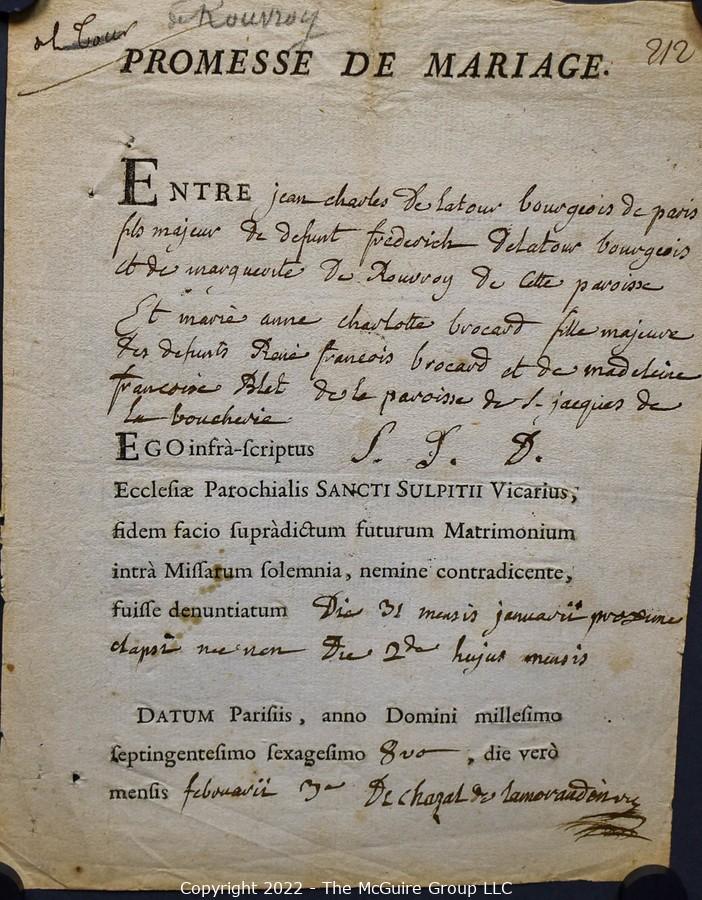 de Rouvroy
212
PROMESSE DE MARIAGE.
ENTRE jean charles De latour bourgeois de paris
fils majeur de defunt frederich Delatour bourgeois
et de marguerite De Rouvroy de cette paroisse
Et marie anne charlotte brocard fille majeure
des defunts René francois brocard et de madeleine
francoise Blet de la paroisse de St jacques de
la boucherie
EGO infrà-ſcriptus S. T. D.
Eccleſiæ Parochialis SANCTI SULPITII Vicarius,
fidem facio ſupràdictum futurum Matrimonium
intrà Miſſarum ſolemnia, nemine contradicente,
fuiſſe denuntiatum Die 31 mensis januarii proxime
elapsi nec non Die 2da hujus mensis
DATUM Pariſiis, anno Domini milleſimo
ſeptingenteſimo ſexageſimo 8vo, die verò
menſis februarii 3a De chazal de lamorandie
Copyright 2022 - The McGuire Group LLC